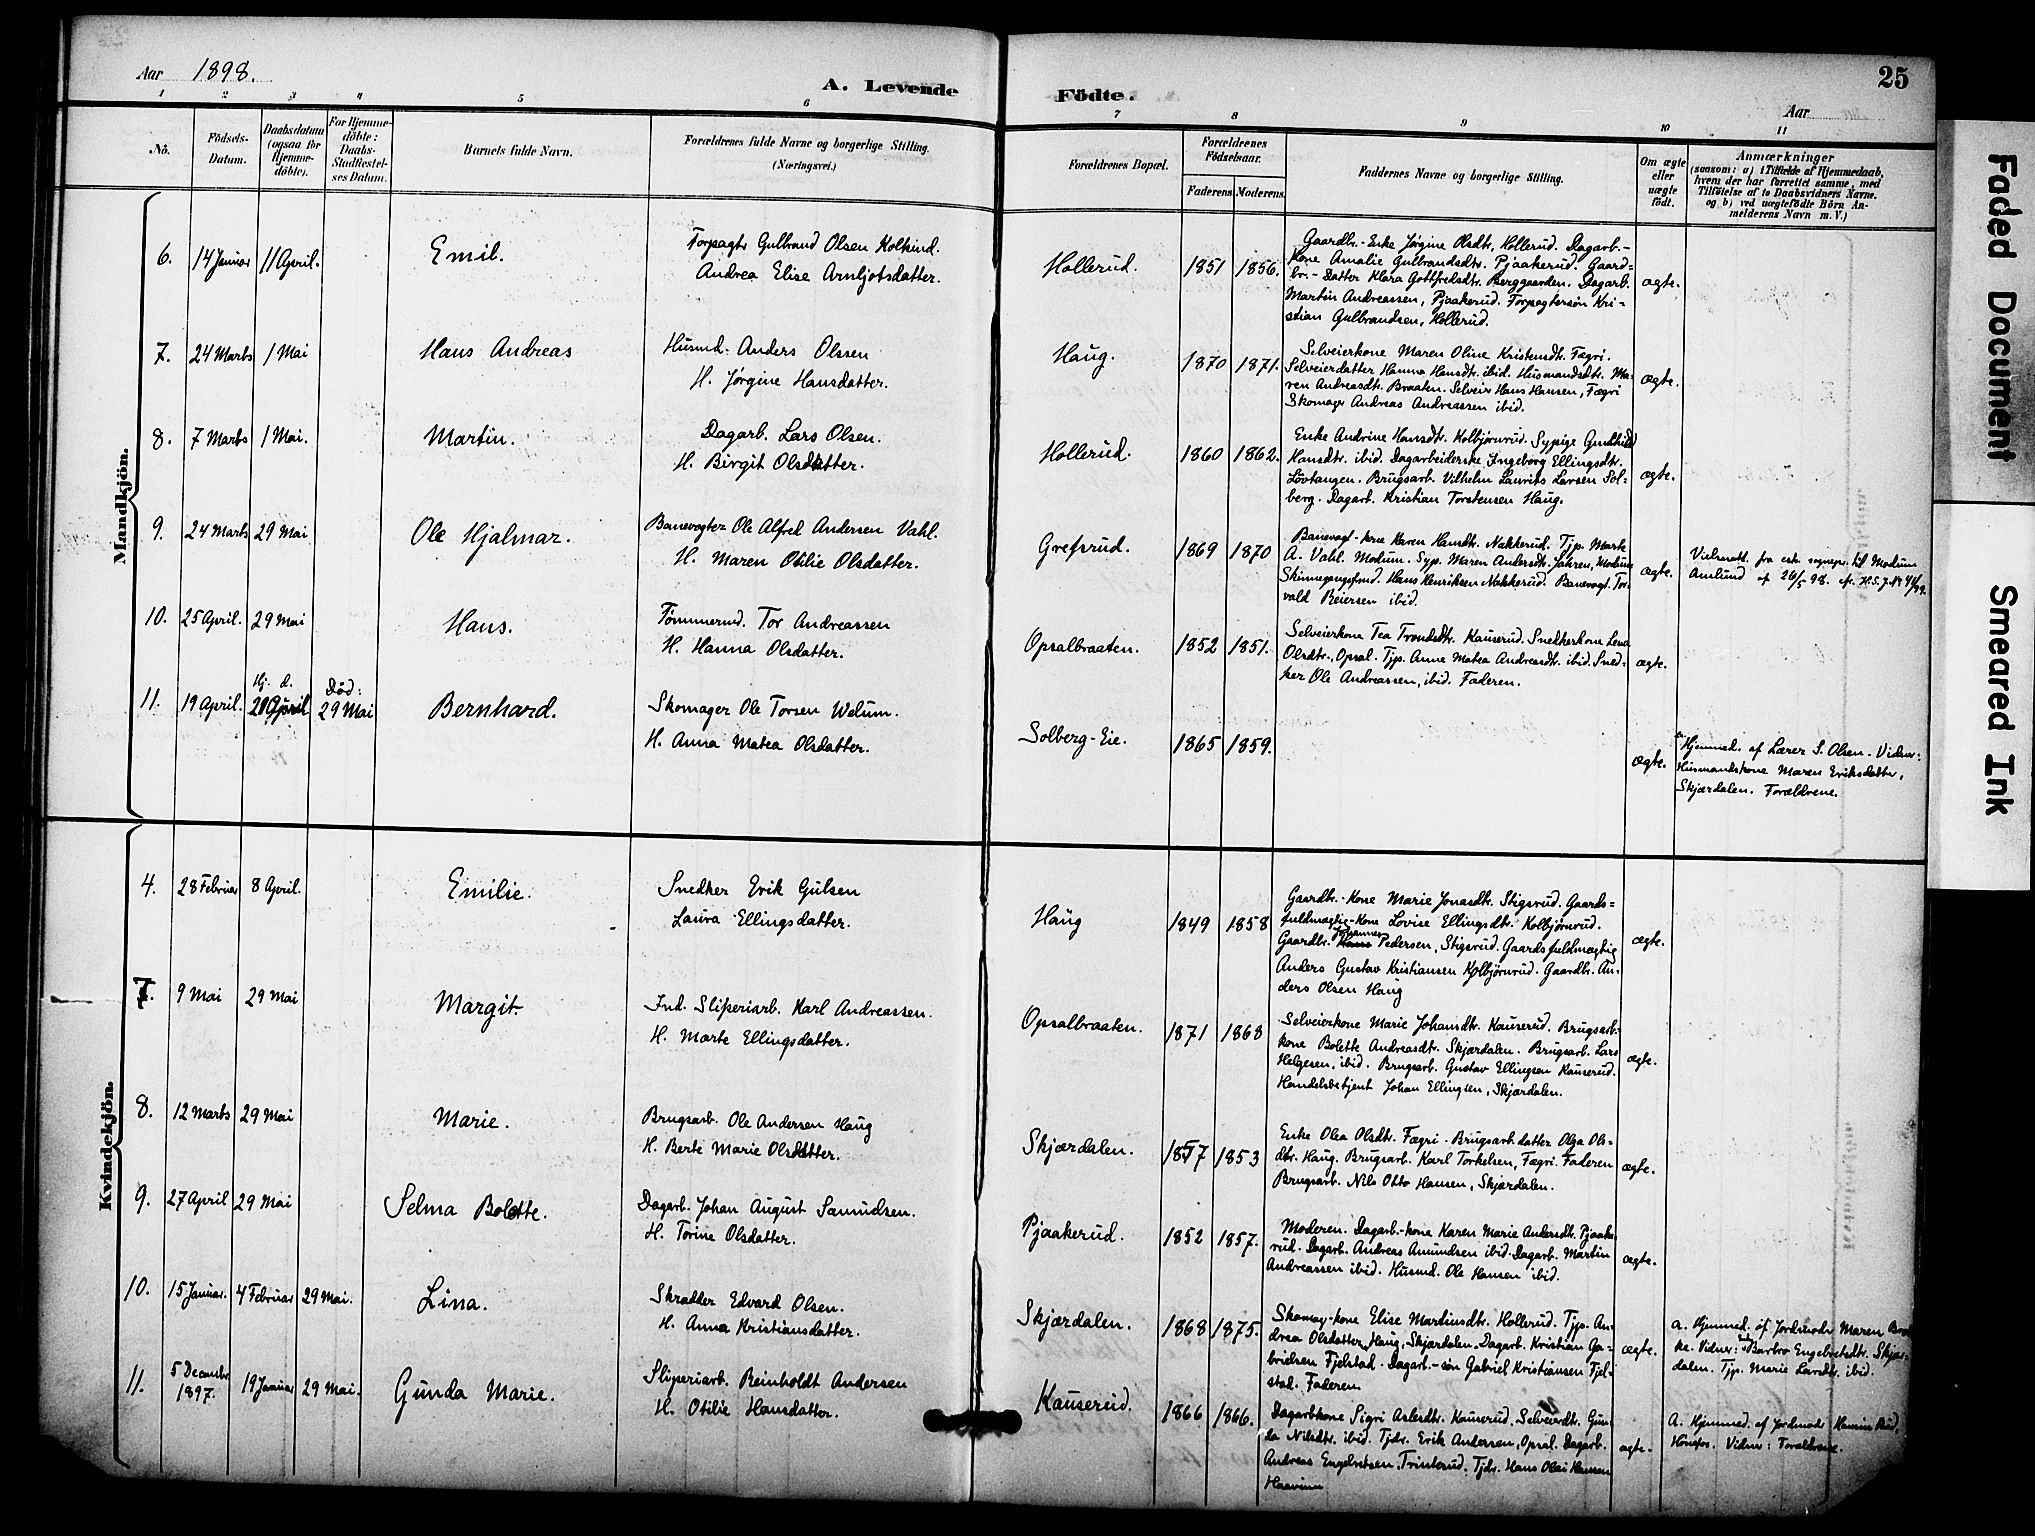 Aar 1898.
A. Levende
Födte.
25
Aar
1 2 3 4 5 6 7 8 9 10 11
No.
Födsels-
Datum.
Daabsdatum
(ogsaa for
Hjemme-
döbte).
For Hjemme-
döbte:
Daabs-
Stadfæstel-
ses Datum.
Barnets fulde Navn.
Forældrenes fulde Navne og borgerlige Stilling.
(Næringsvei.)
Forældrenes Bopæl.
Forældrenes
Födselsaar.
Faderens Moderens
Faddernes Navne og borgerlige Stilling.
Om ægte
eller
uægte
födt.
Anmærkninger
(saasom: a) i Tilfælde af Hjemmedaab,
hvem der har forrettet samme, med
Tilföielse af to Daabsvidners Navne.
og b) ved uægtefödte Börn An-
melderens Navn m. V.)
Mandkjön.
6. 14 Januar 11 April. Emil.
Forpagtr Gulbrand Olsen Kolkind.
Andrea Elise Arnljotsdatter.
Hollerud. 1851 1856.
Gaardbr.-Enke Jørgine Olsdtr. Hollerud. Dagarb.-
kone Amalie Gulbrandsdtr. Pjaakerud. Gaard=
br.-Datter Klara Gottfredsdtr. Berggaarden. Dagarb.
Martin Andreassen, Pjaakerud. Forpagtersøn Kri-
stian Gulbrandsen, Hollerud.
ægte.
7. 24 Marts 1 Mai Hans Andreas
Husmd. Anders Olssen
H. Jørgine Hansdatter.
Haug. 1870 1871.
Selveierkone Maren Oline Kristensdtr. Fægri.
Selveierdatter Hanna Hansdtr. ibid. Husmandsdtr. Ma-
ren Andreasdtr. Braaten. Selveier Hans Hansen, Fægri
Skomager Andreas Andreassen ibid.
ægte.
8. 7 Marts 1 Mai. Martin.
Dagarb. Lars Olsen.
H. Birgit Olsdatter.
Hollerud. 1860 1862.
Enke Andrine Hansdtr. Kolbjørnrud. Sypige Gundhild
Hansdtr. ibid. Dagarbeiderske Ingeborg Ellingsdtr.
Løvtangen. Brugsarb. Vilhelm Laurits Larsen Sol-
berg. Dagarb. Kristian Torstensen Haug.
ægte.
9. 24 Marts 29 Mai Ole Hjalmar.
Banevogter Ole Alfred Andersen Vahl.
H. Maren Otilie Olsdatter.
Grefsrud. 1869 1870
Banevogt.-kone Karen Hansdtr. Nakkerud. Tjp. Marte
A. Vahl. Modum. Syp. Maren Andersdtr. Jahren, Modum
Hans Henriksen Nakkerud. Banevogt. Tor-
vald Beiersen ibid.
ægte.
fra til Modum
26/5 98.
10. 25 April. 29 Mai Hans.
Tømmermd. Tor Andreassen
H. Hanna Olsdatter.
Opsalbraaten. 1852 1851.
Selveierkone Tea Trondsdtr. Kauserud. Snedkerkone Lena
Olsdtr., Opsal. Tjp. Anne Matea Andreasdtr. ibid. Sned-
ker Ole Andreassen, ibid. Faderen.
ægte.
11. 19 April. Hj. d. 20 April Død: 29 Mai Bernhard.
Skomager Ole Torsen Welum.
H. Anna Matea Olsdatter.
Solberg-Eie. 1865 1859.
ægte.
Hjemmed. af Lærer S. Olsen. Vidner:
Husmandskone Maren Eriksdatter,
Skjærdalen. Forældrene.
Kvindekjön.
4. 28 Februar 8 April. Emilie.
Snedker Erik Gulsen
Laura Ellingsdatter.
Haug 1849 1858
Gaardbr.-Kone Marie Jonasdtr. Stigsrud. Gaards=
fuldmægtig-Kone Lovise Ellingsdtr. Kolbjørnrud.
Gaardbr. Johannes Pedersen, Stigsrud. Gaardsfuldmægtig
Anders Gustav Kristiansen Kolbjørnrud. Gaardbr. An-
ders Olsen Haug
ægte.
7. 9 Mai 29 Mai Margit.
Ind. Sliperiarb. Karl Andreassen.
H. Marte Ellingsdatter.
Opsalbraaten. 1871 1868
Selveierkone Marie Johansdtr. Kauserud. Brugsarb-
kone Bolette Andreasdtr. Skjærdalen. Brugsarb. Lars
Helgesen, ibid. Brugsarb. Gustav Ellingsen Kauserud.
Handelsbetjent Johan Ellingsen, Skjærdalen.
ægte.
8. 12 Marts 29 Mai Marie.
Brugsarb. Ole Andersen Haug
H. Berte Marie Olsdatter.
Skjærdalen. 1857 1853
Enke Olea Olsdtr. Fægri. Brugsarb.datter Olga Ols-
dtr. Haug. Brugsarb. Karl Torkelsen, Fægri. Faderen
Brugsarb. Nils Otto Hansen, Skjærdalen.
ægte.
9. 27 April 29 Mai Selma Bolette.
Dagarb. Johan August Samundsen.
H. Torine Olsdatter.
Pjaakerud. 1852 1857.
Moderen. Dagarb.-kone Karen Marie Andersdtr. Pjaake-
rud. Dagarb. Andreas Amundsen ibid. Dagarb. Martin
Andreassen ibid. Husmd. Ole Hansen ibid.
ægte.
10. 15 Januar. 4 Februar 29 Mai. Lina.
Skradder Edvard Olsen.
H. Anna Kristiansdatter.
Skjærdalen. 1868 1875.
Skomag-kone Elise Martinsdtr. Hollerud. Tjp. An-
drea Olsdatter Haug, Skjærdalen. Dagarb. Kristian Ga-
brielsen Fjelstad. Dagarb.-søn Gabriel Kristiansen Fjel-
stad. Faderen.
ægte.
a. Hjemmed. af Jordmoder Maren
ke. Vidner: Barbro Engebretsdtr. Skjær-
dalen. Tjp. Marie Larsdtr. ibid.
11. 5 December 1897. 19 Januar 29 Mai. Gunda Marie.
Sliperiarb. Reinholdt Andersen
H. Otilie Hansdatter.
Kauserud. 1866 1866.
Dagarbkone Sigri Aslesdtr. Kauserud. Selveierdtr. Gun-
da Nilsdtr. ibid. Tjdr. Erik Andersen, Opsal. Dagarb.
Andreas Engebretsen, Trinterud. Tjdr. Hans Olai Hansen
Haaverun
ægte.
A. Hjemmed. af Jordmoder
Hönefos. Vidner: Forældrene.
Faded Document
Smeared Ink